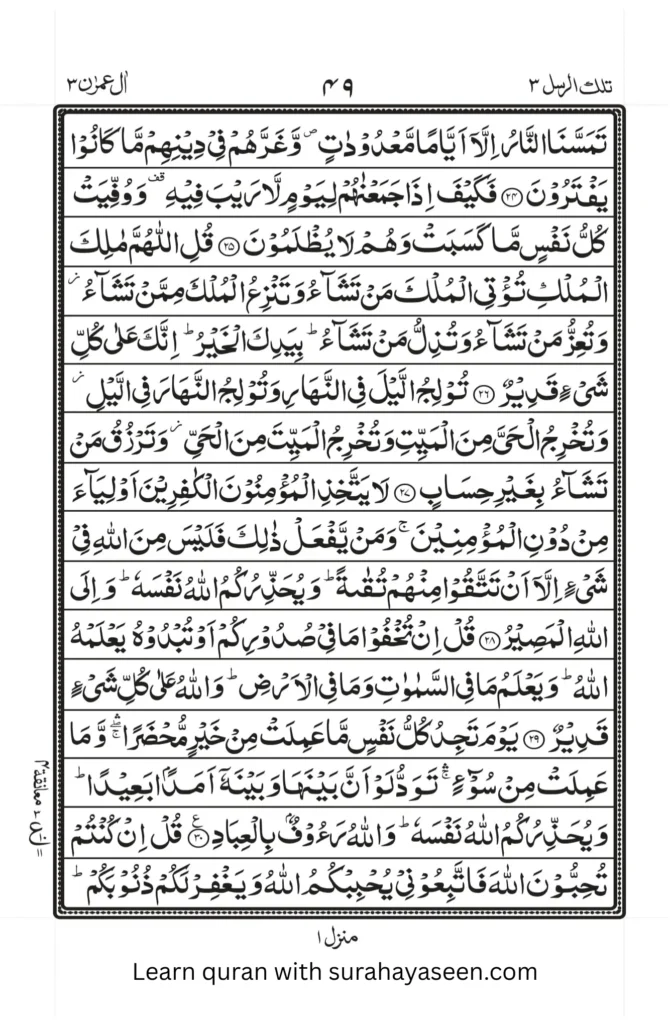 تلك الرسل ٣ ۴۹ اٰل عمرٰن ٣
تَمَسَّنَا النَّارُ اِلَّاۤ اَيَّامًا مَّعْدُوْدٰتٍ ۪ وَّغَرَّهُمْ فِيْ دِيْنِهِمْ مَّا كَانُوْا
يَفْتَرُوْنَ ﴿۲۴﴾ فَكَيْفَ اِذَا جَمَعْنٰهُمْ لِيَوْمٍ لَّا رَيْبَ فِيْهِ ۟ وَوُفِّيَتْ
كُلُّ نَفْسٍ مَّا كَسَبَتْ وَهُمْ لَا يُظْلَمُوْنَ ﴿۲۵﴾ قُلِ اللّٰهُمَّ مٰلِكَ
الْمُلْكِ تُؤْتِي الْمُلْكَ مَنْ تَشَآءُ وَتَنْزِعُ الْمُلْكَ مِمَّنْ تَشَآءُ ز
وَتُعِزُّ مَنْ تَشَآءُ وَتُذِلُّ مَنْ تَشَآءُ ؕ بِيَدِكَ الْخَيْرُ ؕ اِنَّكَ عَلٰى كُلِّ
شَيْءٍ قَدِيْرٌ ﴿۲۶﴾ تُوْلِجُ الَّيْلَ فِي النَّهَارِ وَتُوْلِجُ النَّهَارَ فِي الَّيْلِ ز
وَتُخْرِجُ الْحَيَّ مِنَ الْمَيِّتِ وَتُخْرِجُ الْمَيِّتَ مِنَ الْحَيِّ ز وَتَرْزُقُ مَنْ
تَشَآءُ بِغَيْرِ حِسَابٍ ﴿۲۷﴾ لَا يَتَّخِذِ الْمُؤْمِنُوْنَ الْكٰفِرِيْنَ اَوْلِيَآءَ
مِنْ دُوْنِ الْمُؤْمِنِيْنَ ۚ وَمَنْ يَّفْعَلْ ذٰلِكَ فَلَيْسَ مِنَ اللّٰهِ فِيْ
شَيْءٍ اِلَّاۤ اَنْ تَتَّقُوْا مِنْهُمْ تُقٰىةً ؕ وَيُحَذِّرُكُمُ اللّٰهُ نَفْسَهٗ ؕ وَاِلَى
اللّٰهِ الْمَصِيْرُ ﴿۲۸﴾ قُلْ اِنْ تُخْفُوْا مَا فِيْ صُدُوْرِكُمْ اَوْ تُبْدُوْهُ يَعْلَمْهُ
اللّٰهُ ؕ وَيَعْلَمُ مَا فِي السَّمٰوٰتِ وَمَا فِي الْاَرْضِ ؕ وَاللّٰهُ عَلٰى كُلِّ شَيْءٍ
قَدِيْرٌ ﴿۲۹﴾ يَوْمَ تَجِدُ كُلُّ نَفْسٍ مَّا عَمِلَتْ مِنْ خَيْرٍ مُّحْضَرًا ۛۚ وَّمَا
عَمِلَتْ مِنْ سُوْٓءٍ ۛۚ تَوَدُّ لَوْ اَنَّ بَيْنَهَا وَبَيْنَهٗۤ اَمَدًۢا بَعِيْدًا ؕ
وَيُحَذِّرُكُمُ اللّٰهُ نَفْسَهٗ ؕ وَاللّٰهُ رَءُوْفٌۢ بِالْعِبَادِ ﴿۳۰﴾ ع قُلْ اِنْ كُنْتُمْ
تُحِبُّوْنَ اللّٰهَ فَاتَّبِعُوْنِيْ يُحْبِبْكُمُ اللّٰهُ وَيَغْفِرْ لَكُمْ ذُنُوْبَكُمْ ؕ
معانقة
منزل ١
Learn quran with surahayaseen.com